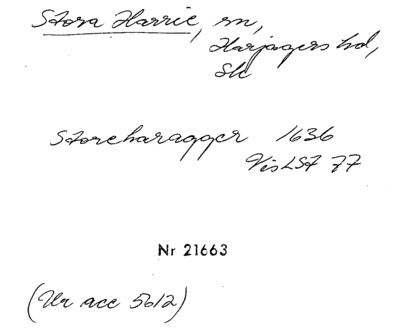 Stora Harrie, sn,
Harjagers hd,
Sk
Storeharagger 1636
VisLSF 77
Nr 21663
(Ur acc 5612)